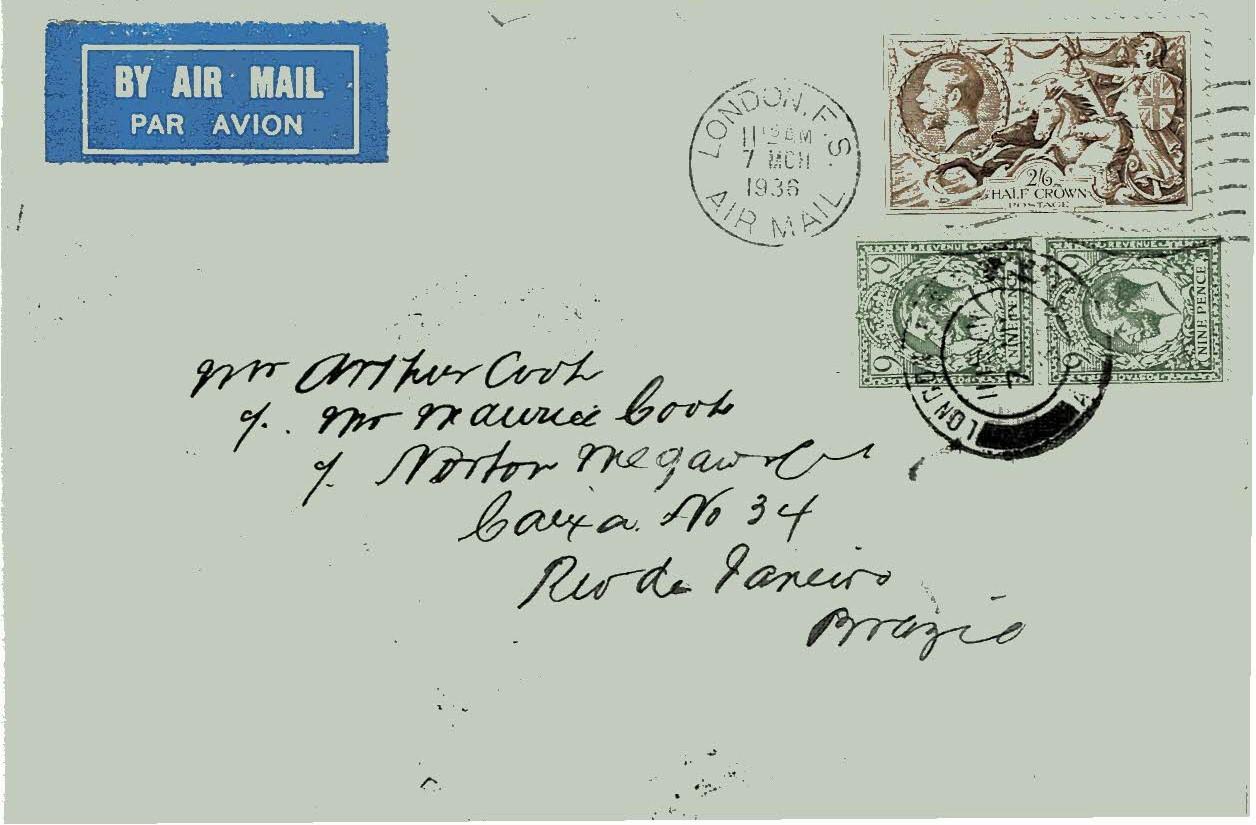 BY AIR MAIL
PAR AVION
LONDON. F. S.
7 MCH
1936
AIR MAIL
2/6
HALF CROWN
POSTAGE
REVENUE
9
9
NINE PENCE
REVENUE
9
9
NINE PENCE
LONDON
7
Mr Arthur Cook
c/. Mr Maurice Cook
c/. Norton Megaw & Co
Caixa. No 34
Rio de Janeiro
Brazil